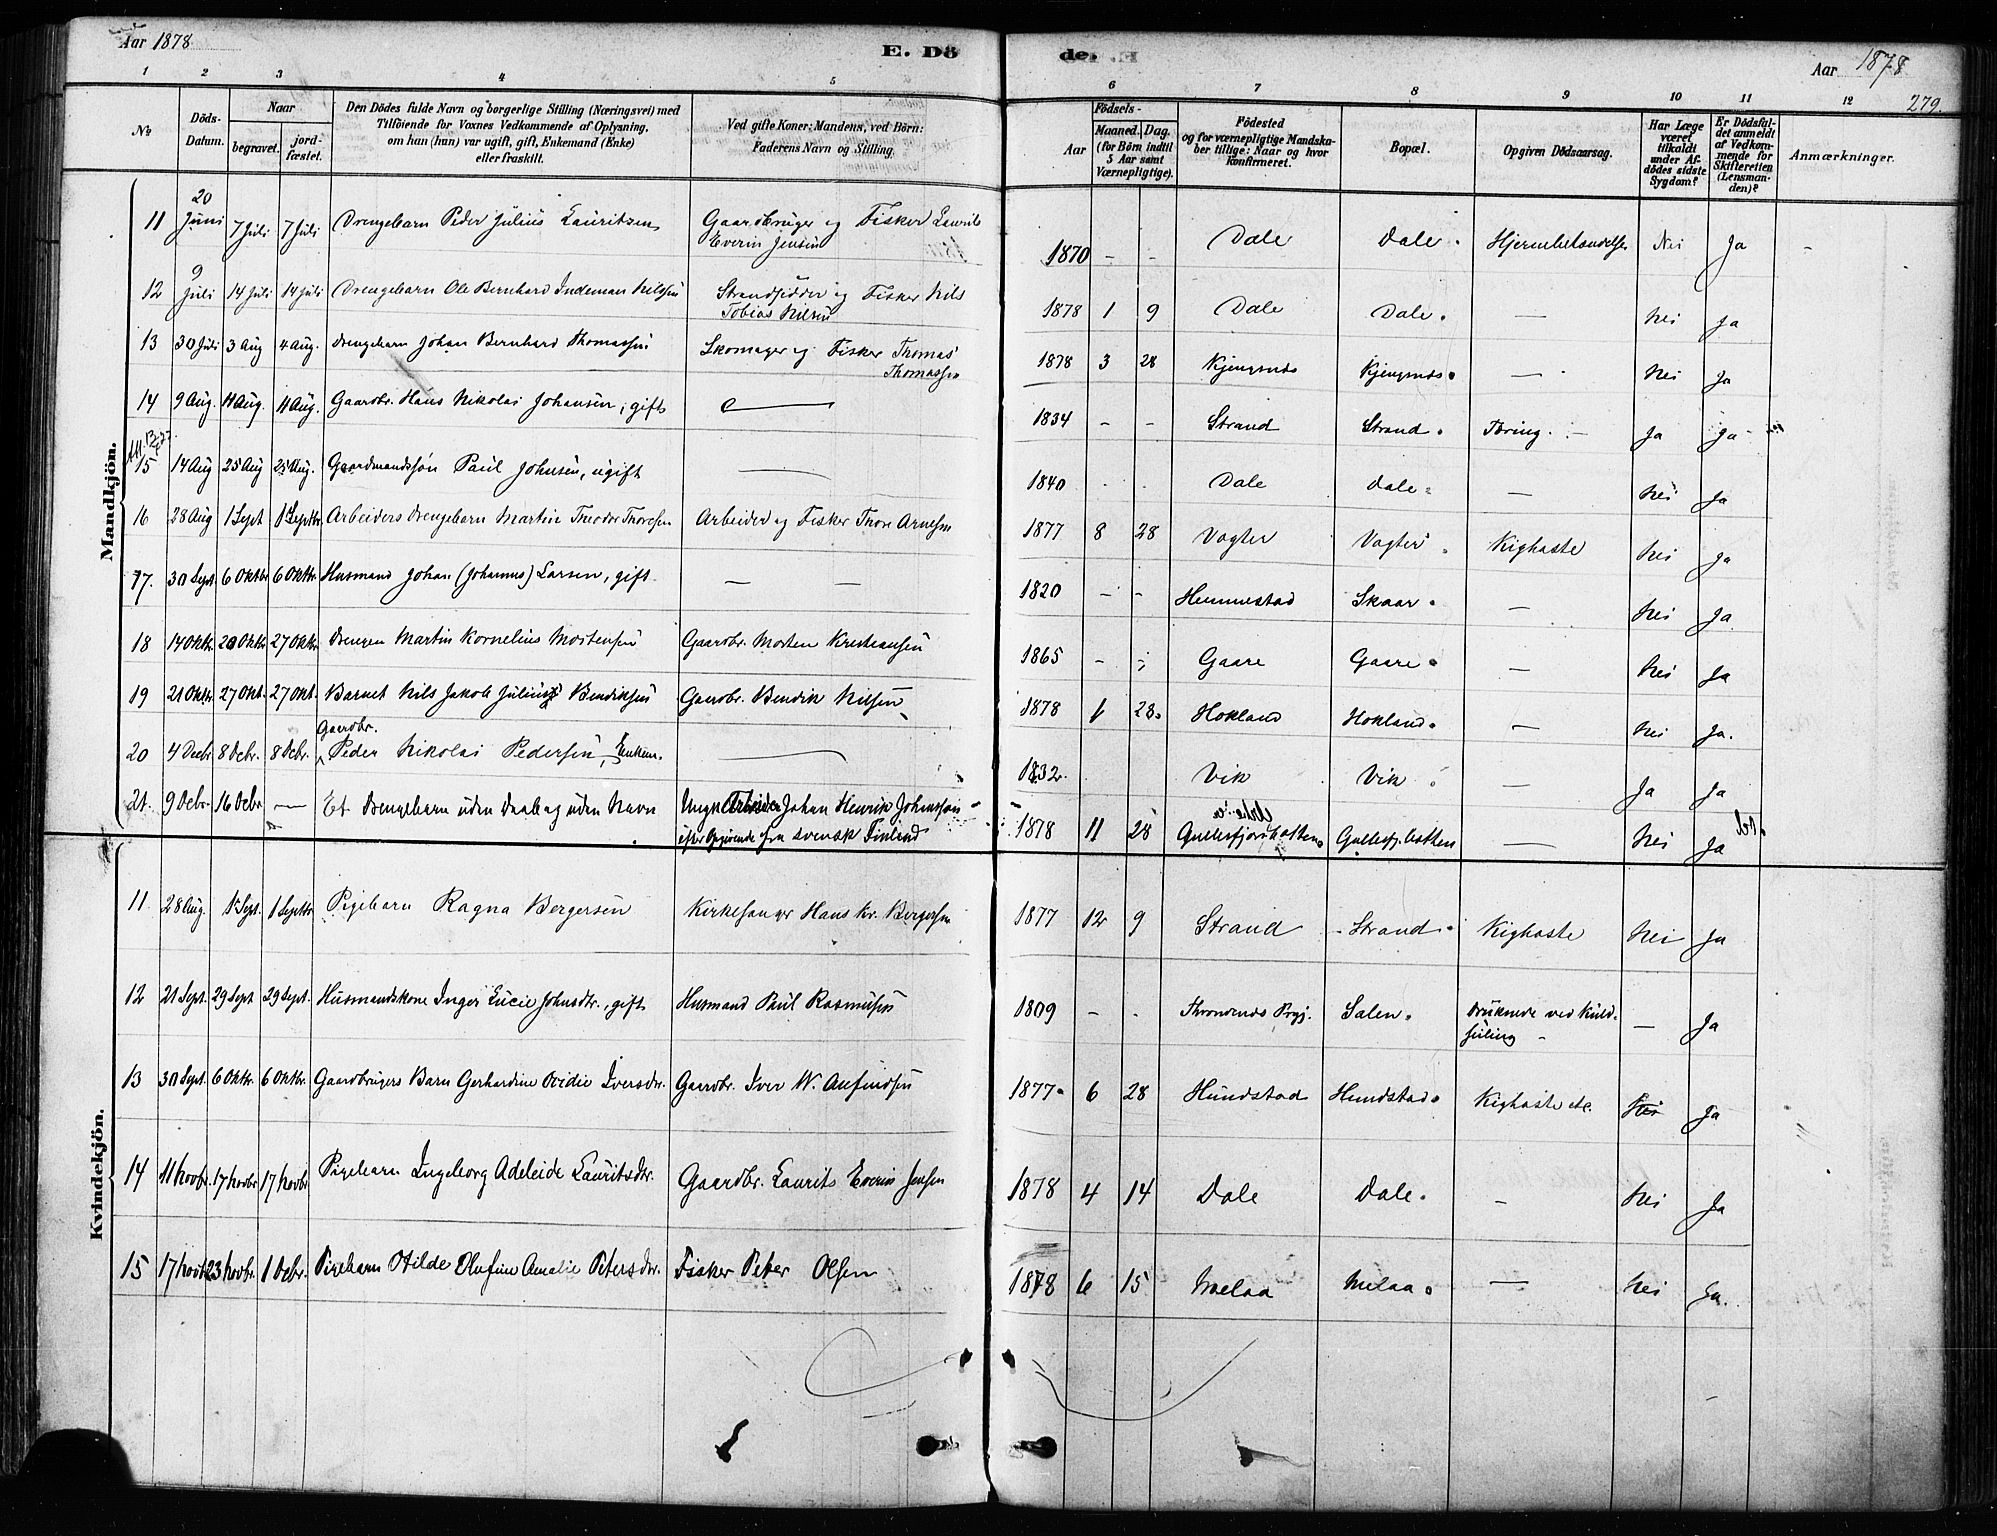 Aar 1878
E. Dö
de.
Aar 1878
279.
1 2 3 4 5 6 7 8 9 10 11 12
No
Döds-Datum.
Naar
begravet.
jord-fæstet.
Den Dödes fulde Navn og borgerlige Stilling (Næringsvei) med
Tilföiende for Voxnes Vedkommende af Oplysning,
om han (hun) var ugift, gift, Enkemand (Enke)
eller fraskilt.
Ved gifte Koner: Mandens, ved Börn:
Faderens Navn og Stilling.
Födsels-
Aar
Maaned. Dag.
(for Börn indtil
5 Aar samt
Værnepligtige).
Födested
og for værnepligtige Mandska-
ber tillige: Naar og hvor
Konfirmeret.
Bopæl.
Opgiven Dödsaarsag.
Har Læge
været
tilkaldt
under Af-
dödes sidste
Sygdom?
Er Dödsfal-
det anmeldt
af Vedkom-
mende for
Skifteretten
(Lensman-
den)?
Anmærkninger.
Mandkjön.
11 20 Juni 7 Juli 7 Juli Drengebarn Peder Julius Lauritsen Gaardbruger og Fisker Laurits Everin Jensen 1870 - - Dale Dale. Hjernebetændelse Nei Ja
12 9 Juli 14 Juli 14 Juli Drengebarn Ole Bernhard Indeman Nilssen Strandsidder og Fisker Nils Tobias Nilsen 1878 1 9 Dale Dale. — Nei Ja
13 30 Juli 3 Aug 4 Aug. Drengebarn Johan Bernhard Thomassen Skomager og Fisker Thomas Thomassen 1878 3 28 Kjengsnæs Kjengsnæs. — Nei Ja
14 9 Aug. 11 Aug. 11 Aug. Gaardbr. Hans Nikolai Johansen, gift — 1834 - - Strand Strand. Tæring. Ja Ja
15 14 Aug 25 Aug 25 Aug. Gaardmandssøn Paul Johnsen, ugift — 1840 Dale Dale — Nei Ja
16 28 Aug 1 Sept 1 Septbr Arbeiders Drengebarn Martin Theodor Thoresen Arbeider og Fisker Thore Arnesen 1877 8 28 Vogter Vogter Kighoste Nei Ja
17. 30 Sept. 6 Oktbr 6 Oktbr. Husmand Johan (Johannes) Larsen, gift — — 1820 - - Hemmestad Skaar. — Nei Ja
18 14 Oktbr. 20 Oktbr 27 Oktbr Drengen Martin Kornelius Mortensen Gaardbr. Morten Kristiansen 1865 - - Gaare Gaare. — Nei Ja
19 21 Oktbr. 27 Okt. 27 Okt. Barnet Nils Jakob Julius Bendiksen Gaardbr. Bendik Nilsen 1878 1 28. Hokland Hokland. — Nei Ja.
20 4 Decbr 8 Decbr. 8 Decbr. Gaardbr. Peder Nikolai Pedersen, Enkem. — 1832. Vik Vik — Ja Ja
21. 9 Decbr. 16 Decbr — Et Drengebarn uden Daab og uden Navn Johan Henrik fra svensk Finland 1878 11 28 Gullesfjordbotten. Gullesfj.botten — Nei Ja
Kvindekjön.
11 28 Aug. 1 Sept. 1 Septbr Pigebarn Ragna Bergersen Kirkesanger Hans Kr. Bergersen 1877 12 9 Strand Strand. Kighoste Nei Ja
12 21 Sept. 29 Sept 29 Sept. Husmandskone Inger Lucie Johnsdtr., gift Husmand Paul Rasmussen 1809 - - Throndenæs Prgj. Salen. Druknede ved Kuldseiling — Ja
13 30 Sept. 6 Oktbr. 6 Oktbr. Gaardbrugers Barn Gerhardine Ovidie Iversdtr. Gaardbr. Iver W. Anfindsen 1877. 6 28 Hundstad Hundstad. Kighoste etc. Nei Ja
14 11 Novbr. 17 Novbr 17 Novbr. Pigebarn Ingeborg Adeleide Lauritsdtr. Gaardbr. Laurits Everin Jensen 1878 4 14 Dale Dale. — Nei Ja
15 17 Novbr 23 Novbr. 1 Decbr. Pigebarn Otilde Olufine Amalie Petersdtr. Fisker Peter Olsen 1878 6 15 Melaa Melaa. — Nei Ja.